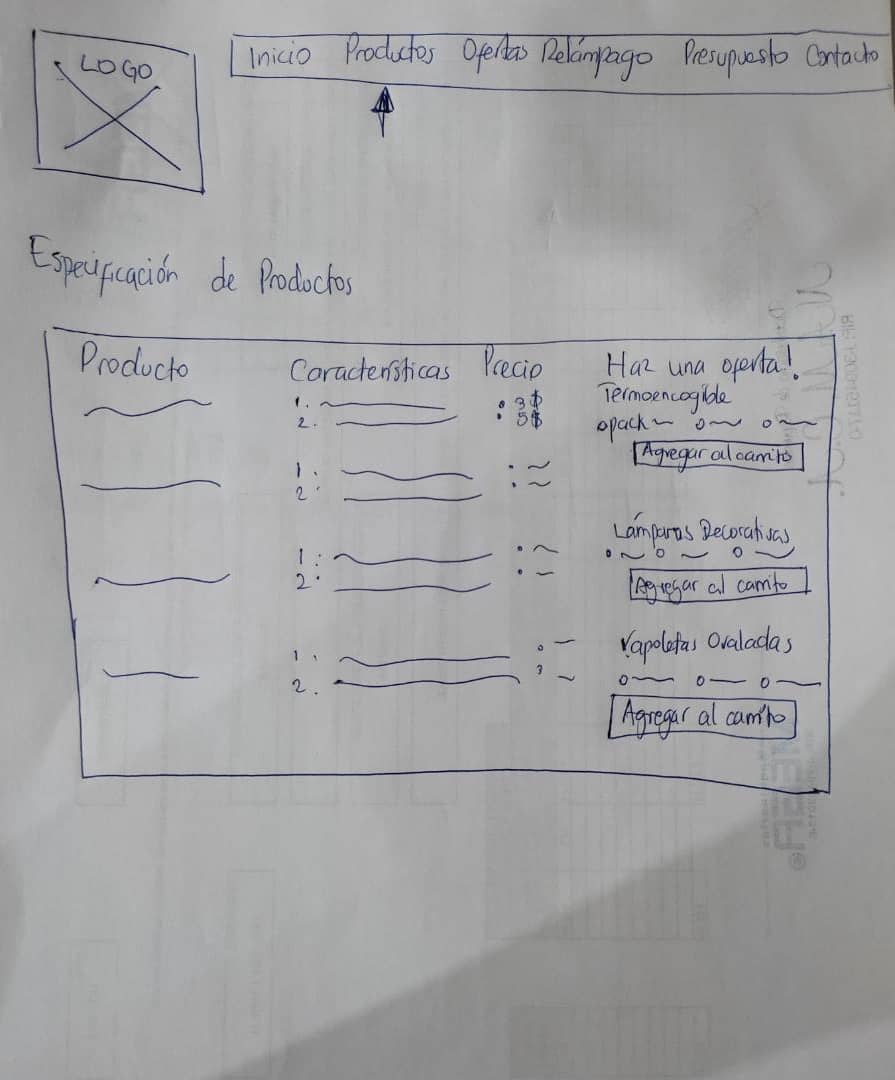 LOGO
Inicio Productos Ofertas Relámpago Presupuesto Contacto
Especificación de Productos
Producto Características Precio Haz una oferta!
1. 3$ Termoencogible
2. 5$ pack
Agregar al carrito
1.
2.
Lámparas Decorativas
1:
2:
Agregar al carrito
Vapoletas Ovaladas
1.
2.
Agregar al carrito